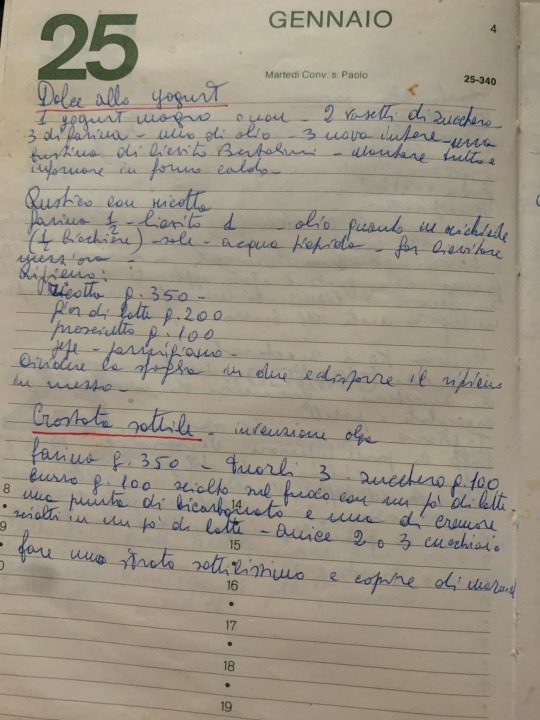 25
GENNAIO
4
Martedì Conv. s. Paolo
25-340
Dolce allo yogurt
1 yogurt magro o non - 2 vasetti di zucchero
3 di farina - uno di olio - 3 uova intere - una
bustina di lievito Bertolini - montare tutto e
infornare in forno caldo -
Rustico con ricotta
farina 1/2 - lievito 1 - olio quanto ne richiede
(1/2 bicchiere) - sale - acqua tiepida - far lievitare
mezz'ora -
Ripieno:
ricotta g. 350 -
fior di latte g. 200
prosciutto g. 100
pepe - parmigiano -
Dividere la sfoglia in due e disporre il ripieno
in mezzo -
Crostata sottile - invenzione olga
farina g. 350 - tuorli 3 zucchero g. 100
burro g. 100 sciolto sul fuoco con un pò di latte -
una punta di bicarbonato e una di cremore
sciolti in un pò di latte - anice 2 o 3 cucchiai
fare uno strato sottilissimo e coprire di
8
9
14
15
16
17
18
19